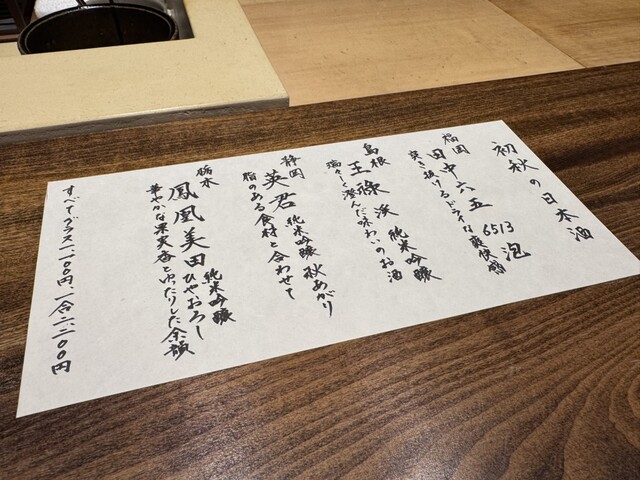 初秋の日本酒
福岡
田中六五 6513 泡
突き抜けるドライな爽快感
島根
王祿 渓 純米吟醸
瑞々しく澄んだ味わいのお酒
静岡
英君 純米吟醸 秋あがり
脂のある食材と合わせて
栃木
鳳凰美田 純米吟醸 ひやおろし
華やかな果実香とゆったりした余韻
すべてグラス一一〇〇円、一合二、二〇〇円